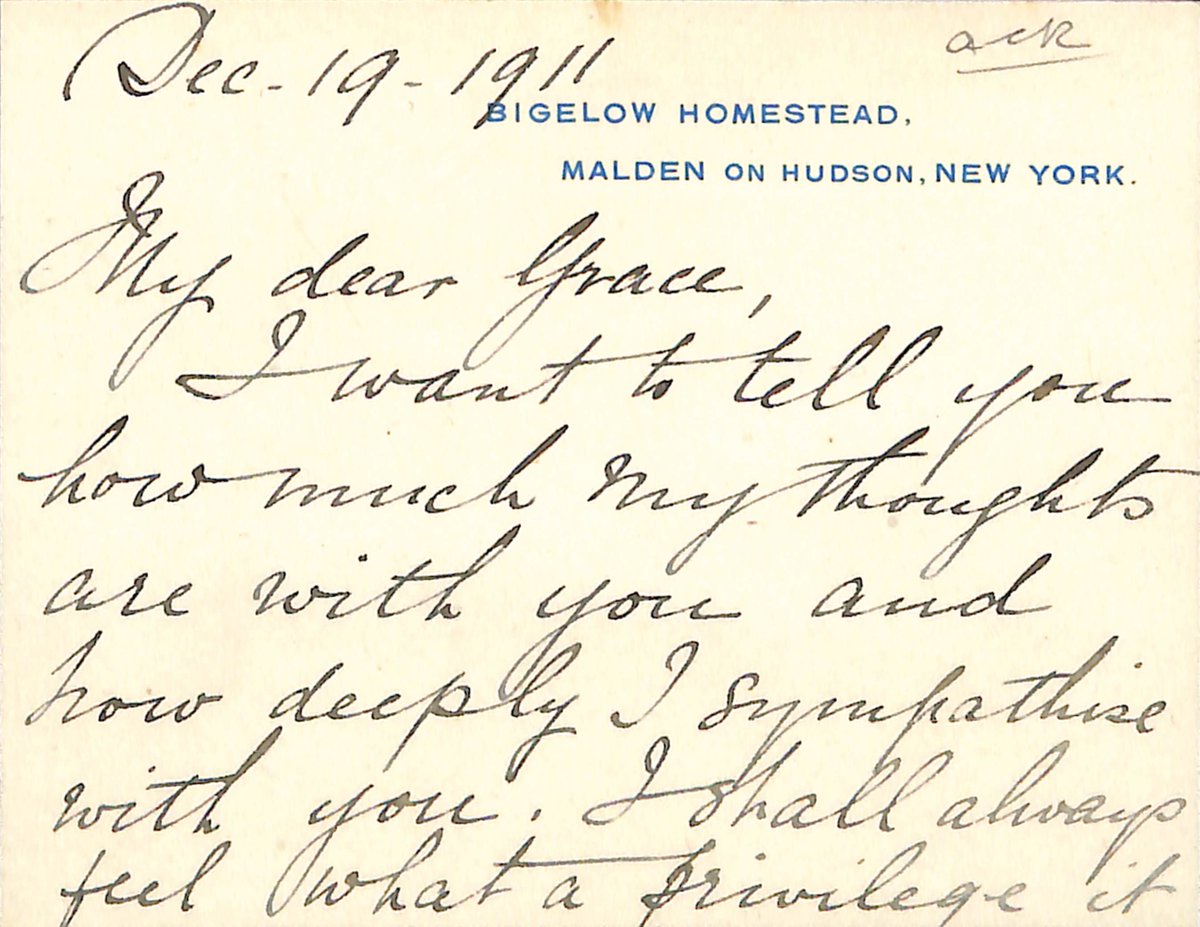 ack
Dec - 19 - 1911
BIGELOW HOMESTEAD,
MALDEN ON HUDSON, NEW YORK.
My dear Grace,
I want to tell you
how much my thoughts
are with you and
how deeply I sympathise
with you. I shall always
feel what a privilege it